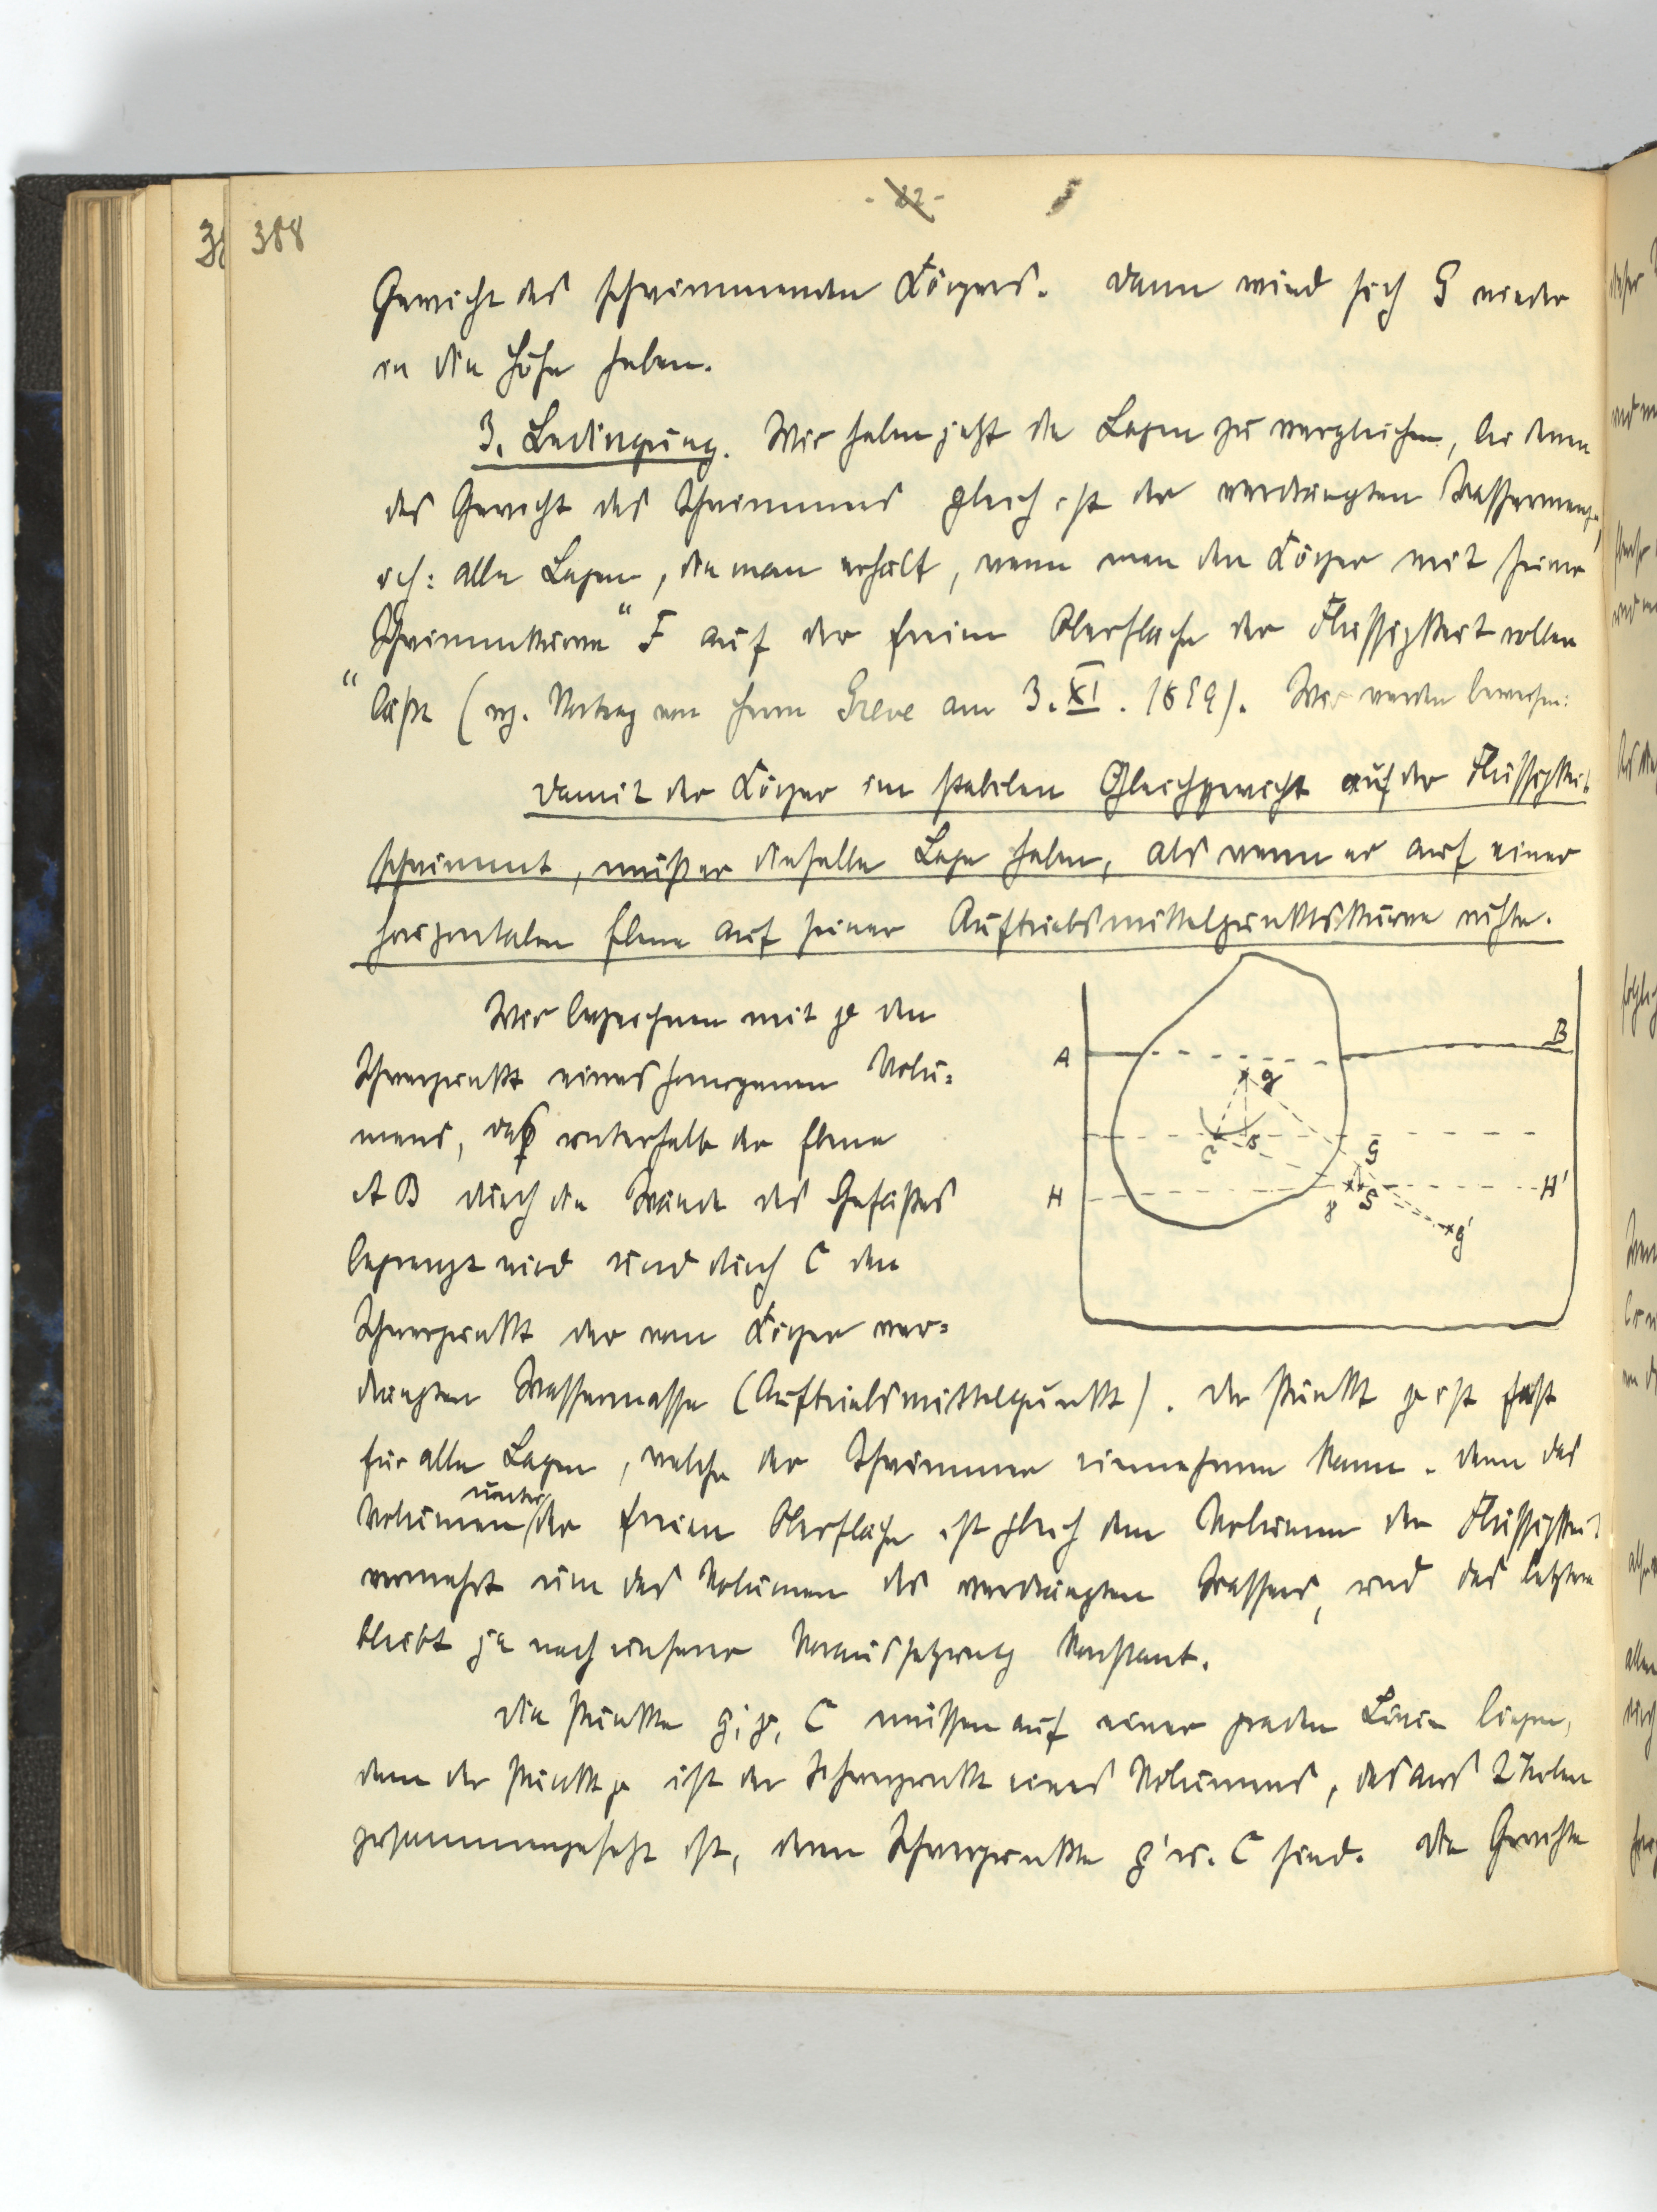 388
- 22 -
Gewicht des schwimmenden Körpers. Dann wird sich G wieder
in die Höhe heben.
3. Bedingung. Wir haben jetzt die Lagen zu vergleichen, bei denen
das Gewicht des Schwimmers gleich ist der verdrängten Wassermenge,
d.h.: alle Lagen, die man erhält, wenn man den Körper mit seiner
Schwimmkurve" F auf der freien Oberfläche der Flüssigkeit rollen
" lässt (vg. Vortrag von Herrn Greve am 3. XI. 1899). Wir werden beweisen:
Damit der Körper im stabilen Gleichgewicht auf der Flüssigkeit
schwimmt, muß er dieselbe Lage haben, als wenn er auf einer
horizontalen Ebene auf seiner Auftriebsmittelpunktskurve ruhte.
Wir bezeichnen mit g den
Schwerpunkt eines homogenen Volu=
mens, das unterhalb der Ebene
A B durch die Wände des Gefäßes
begrenzt wird und durch C den
Schwerpunkt der vom Körper ver=
drängten Wassermasse (Auftriebsmittelpunkt). Der Punkt g ist fest
für alle Lagen, welche der Schwimmer einnehmen kann. Denn das
Volumen unter der freien Oberfläche ist gleich dem Volumen der Flüssigkeit
vermehrt um das Volumen des verdrängten Wassers, und das letztere
bleibt ja nach unserer Voraussetzung konstant.
Die Punkte g', g, C müssen auf einer graden Linie liegen,
denn der Punkt g ist der Schwerpunkt eines Volumens, das aus 2 Teilen
zusammengesetzt ist, deren Schwerpunkte g' u. C sind. Die Gewichte
A
B
g
C
s
G
H
H'
γ
S
g'